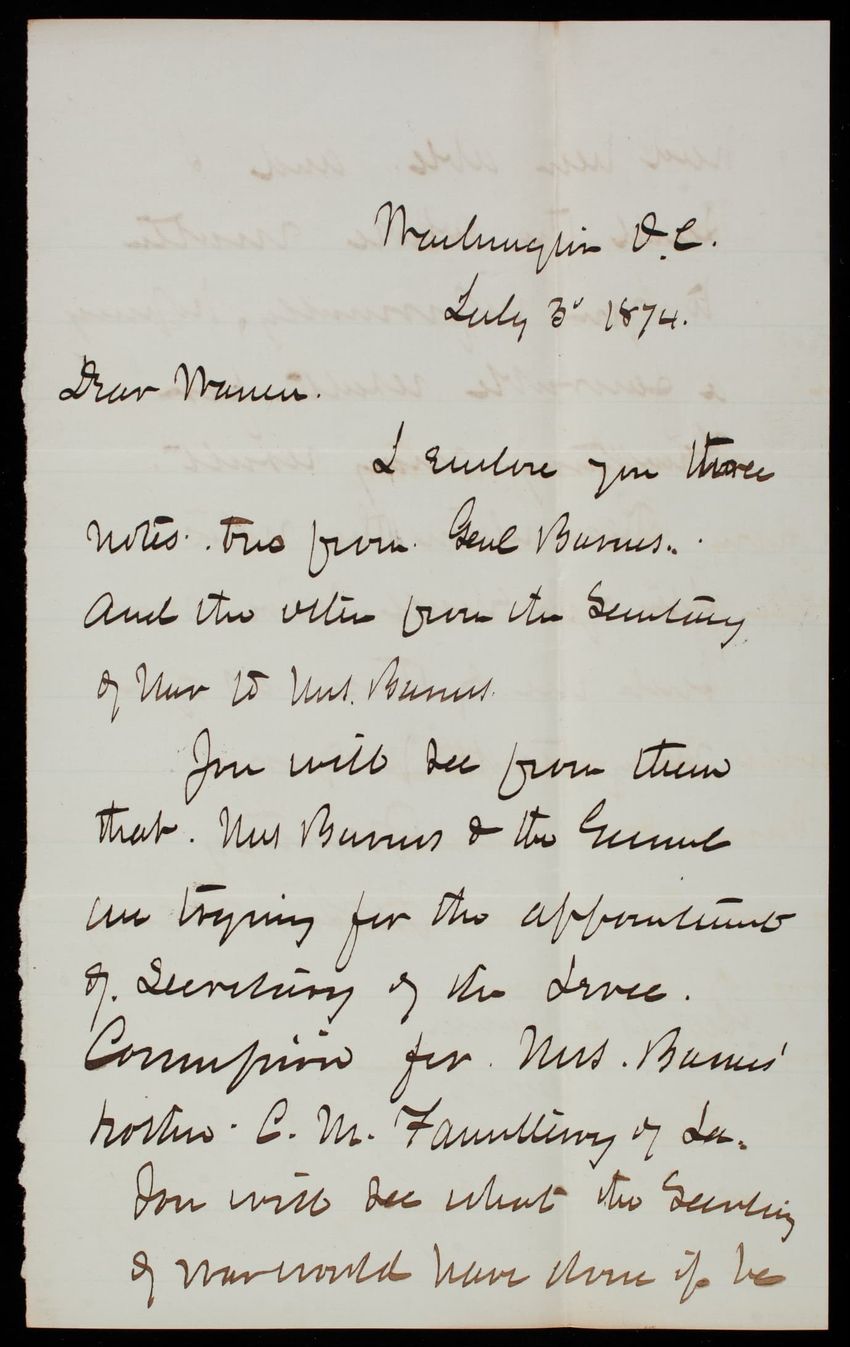 Washington D.C.
July 3d 1874.
Dear Warren.
I enclose you three
notes. two from Genl Barnes.
And the other from the Secretary
of War to Mrs. Barnes.
You will see from them
that. Mrs Barnes & the General
are trying for the appointment
of. Secretary of the Levee.
Commission for. Mrs. Barnes'
brother. C. M. of La.
You will see what the Secretary
of war would have done if he